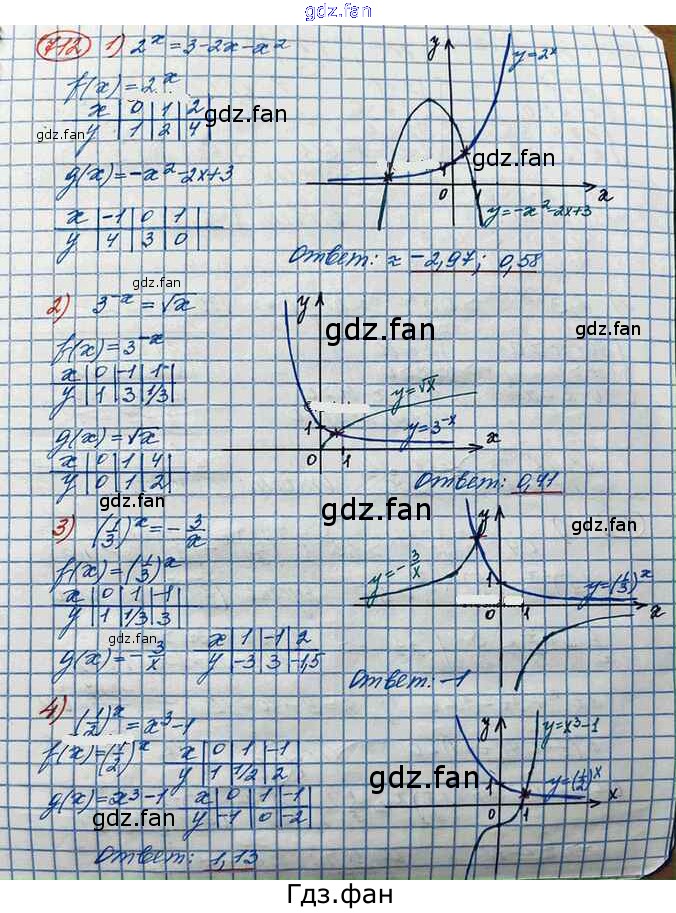 gdz.fan
712 1) 2^x = 3-2x-x²
f(x)=2^x
x | 0 | 1 | 2
y | 1 | 2 | 4
g(x)=-x²-2x+3
x | -1 | 0 | 1
y | 4 | 3 | 0
y
y=2^x
1
0
x
y=-x²-2x+3
Ответ: ≈ -2,97; 0,58
gdz.fan
gdz.fan
gdz.fan
gdz.fan
2) 3^-x = √x
f(x)=3^-x
x | 0 | -1 | 1
y | 1 | 3 | 1/3
g(x)=√x
x | 0 | 1 | 4
y | 0 | 1 | 2
y
y=√x
1
y=3^-x
x
0
1
Ответ: 0,41
gdz.fan
gdz.fan
gdz.fan
gdz.fan
3) (1/3)^x = -3/x
f(x)=(1/3)^x
x | 0 | 1 | -1
y | 1 | 1/3 | 3
g(x)=-3/x
x | 1 | -1 | 2
y | -3 | 3 | -1,5
y
y=-3/x
1
y=(1/3)^x
0
1
x
Ответ: -1
gdz.fan
gdz.fan
gdz.fan
4) (1/2)^x = x³-1
f(x)=(1/2)^x
x | 0 | 1 | -1
y | 1 | 1/2 | 2
g(x)=x³-1
x | 0 | 1 | -1
y | -1 | 0 | -2
y
y=x³-1
y=(1/2)^x
1
0
1
x
Ответ: 1,13
gdz.fan
gdz.fan
gdz.fan
Гдз.фан